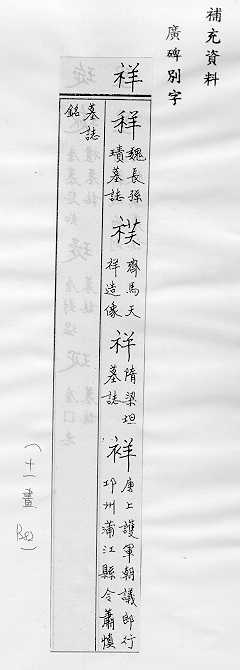 補充資料
廣碑別字
祥
魏長孫
瑱墓誌
齊馬天
祥造像
祥
隋梁坦
墓誌
唐上護軍朝議郎行
邛州蒲江縣令蕭慎
墓誌
銘
(十一畫 )